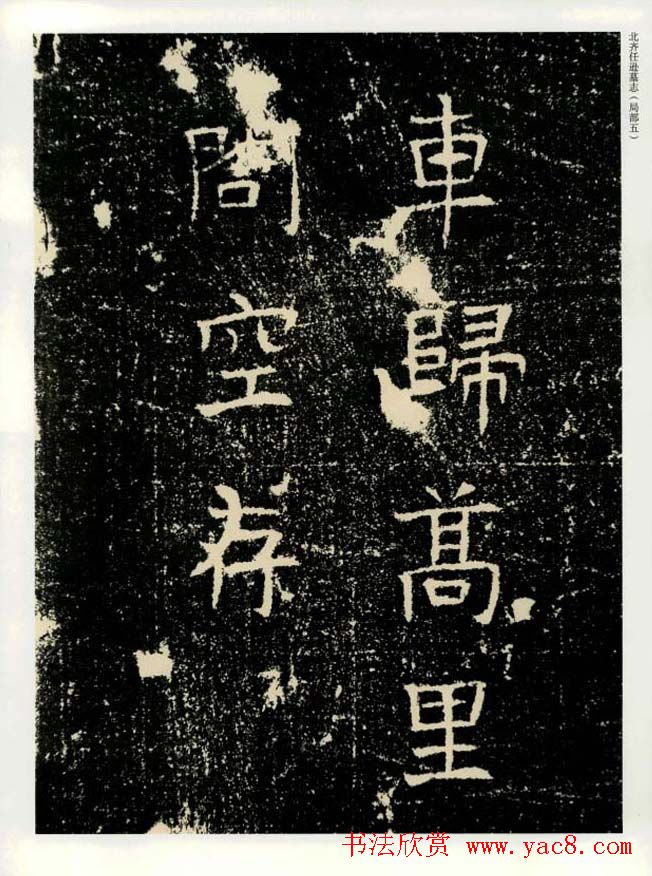 北齐任逊墓志（局部五）
車歸髙里
問空存
书法欣赏 www.yac8.com